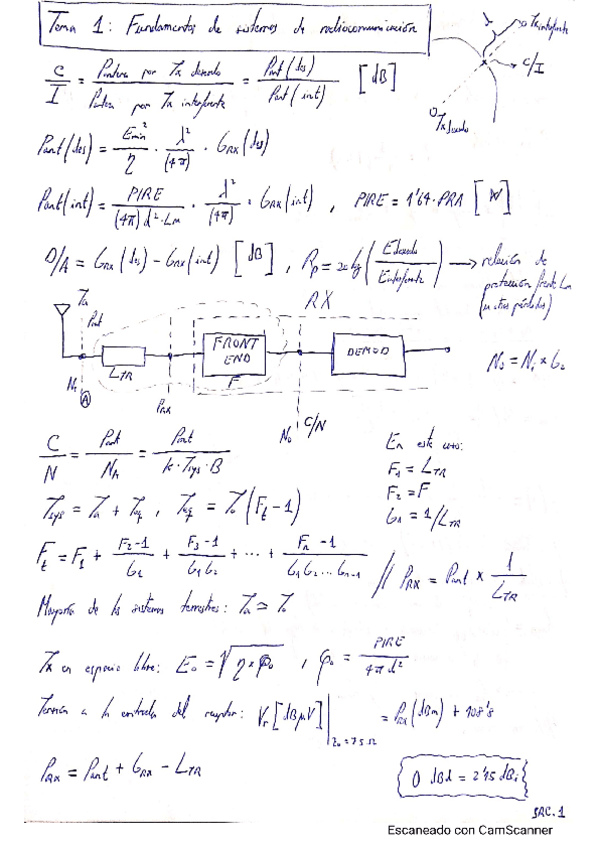 Tema 1: Fundamentos de sistemas de radiocomunicación
Tx interferente
C/I
Tx deseado
C/I = Potencia por Tx deseado / Potencia por Tx interferente = Pant(des) / Pant(int) [dB]
Pant(des) = Emin² / η · λ² / (4π) · GRX(des)
Pant(int) = PIRE / (4π) d² · Lm · λ² / (4π) · GRX(int) , PIRE = 1'64 · PRA [W]
D/A = GRX(des) - GRX(int) [dB] , Rp = 20 log (Edeseado / Einterferente) → relación de
protección frente
(en otros períodos)
Ta
Pant
RX
LTR
FRONT
END
F
DEMOD
N0 = Ni × G
Ni
A
PRX
N0
C/N
C/N = Pant / NA = Pant / k · Tsys · B
En este caso:
F1 = LTR
F2 = F
G1 = 1/LTR
Tsys = Ta + Teq , Teq = T0 (Ft - 1)
Ft = F1 + F2 - 1 / G1 + F3 - 1 / G1 G2 + ... + Fn - 1 / G1 G2 ... Gn-1 // PRX = Pant × 1 / LTR
Mayoría de los sistemas terrestres: Ta ≃ T0
Tx en espacio libre: E0 = √(η × φ0) , φ0 = PIRE / 4πd²
Tensión a la entrada del receptor: Vr [dBμV] | Z0 = 75 Ω = PRX (dBm) + 108'8
PRX = Pant + GRX - LTR
0 dBd = 2'15 dBi
SRC. 1
Escaneado con CamScanner